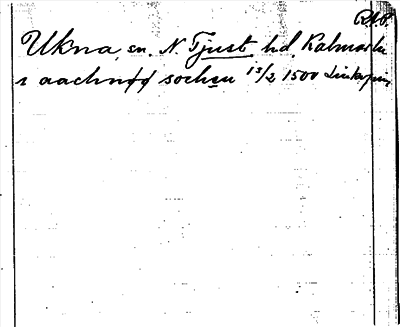 RAP.
Ukna, sn. N. Tjust hd, Kalmar län
i aachnøø sochen 13/2 1500 Linköping